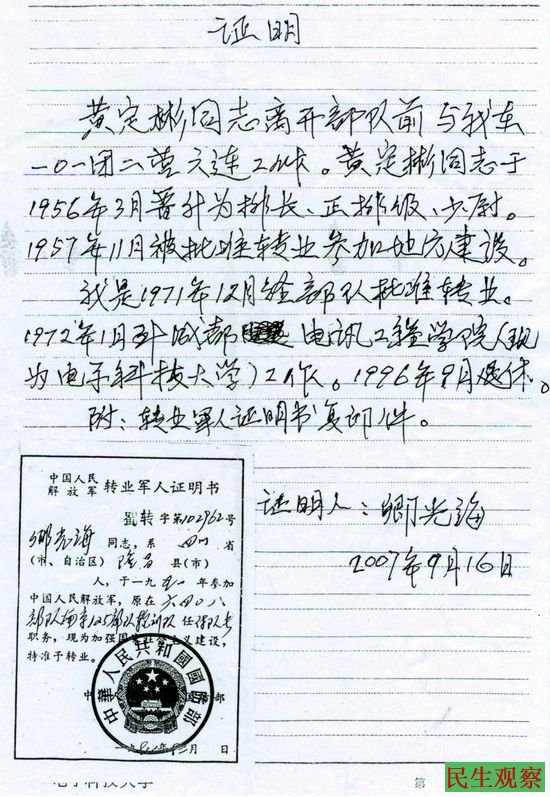 证明
黄定彬同志离开部队前与我在
一〇一团二营六连工作。黄定彬同志于
1956年3月晋升为排长、正排级、少尉。
1957年11月被批准转业参加地方建设。
我是1971年12月经部队批准转业。
1972年1月到成都 电讯工程学院(现
为电子科技大学)工作。1996年9月退休。
附:转业军人证明书复印件。
证明人:卿光海
2007年9月16日
中国人民
解放军 转业军人证明书
转字第102962号
同志,系 四川 省
(市、自治区) 县(市)
人,于一九五一年参加
中国人民解放军,原在
职务,现为加强国家社会主义建设,
特准予转业。
中華人民共和國國防部
电子科技大学
第
民生观察